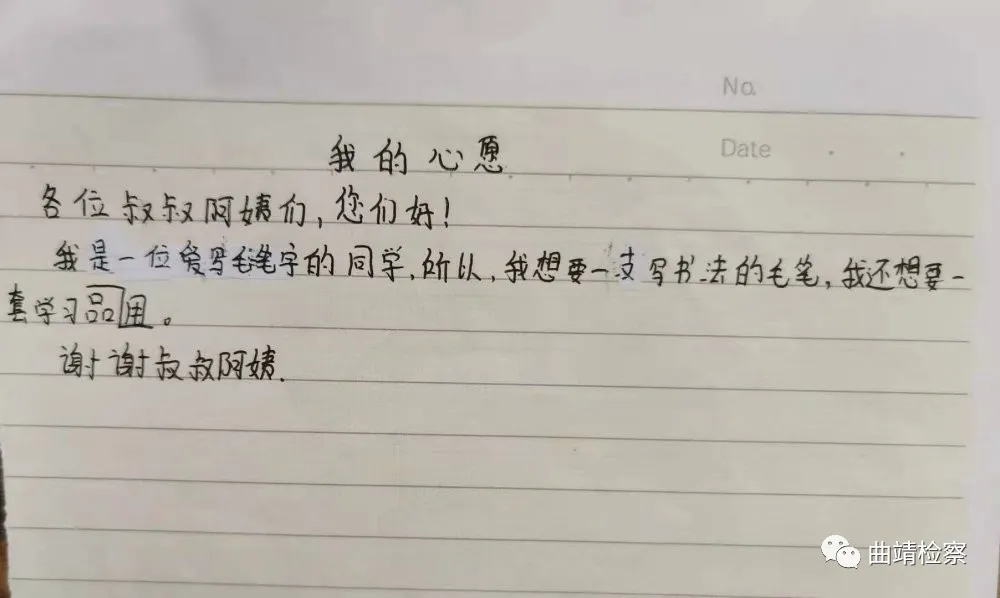 No.
Date
我的心愿
各位叔叔阿姨们,您们好!
我是一位爱写毛笔字的同学,所以,我想要一支写书法的毛笔,我还想要一
套学习品用。
谢谢叔叔阿姨.
曲靖检察